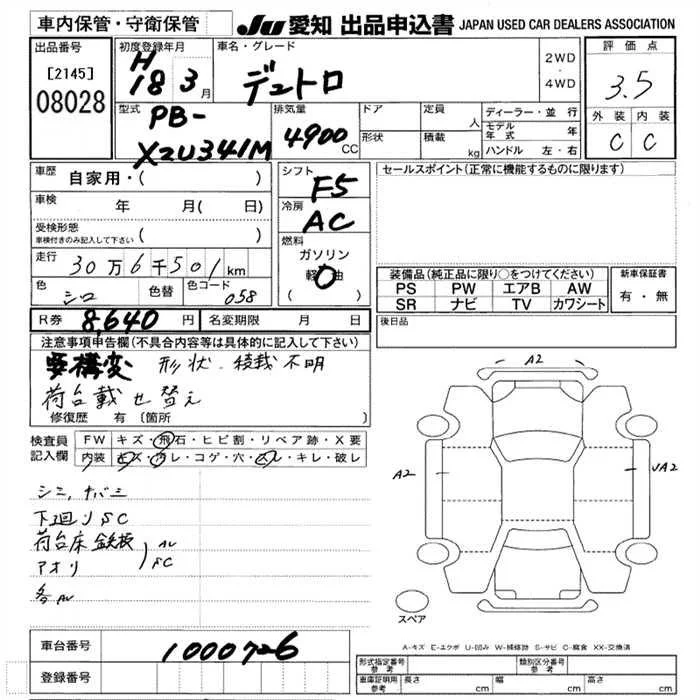 車内保管・守衛保管
JU 愛知 出品申込書 JAPAN USED CAR DEALERS ASSOCIATION
出品番号
[2145]
08028
初度登録年月
H
18 3月
車名・グレード
デュトロ
2WD
・
4WD
評価点
3.5
外装 内装
C C
型式
PB-
XZU341M
排気量
4900CC
ドア
形状
定員 人
積載 kg
ディーラー・並行
モデル年式 年
ハンドル 左・右
車歴 自家用・( )
車検 年 月( 日)
受検形態
車検付きのみ記入して下さい ( )
走行 30万6千501km
色 シロ 色替 色コード 058
シフト
F5
冷房
AC
燃料
ガソリン
軽油
( )
セールスポイント(正常に機能するものに限ります)
装備品(純正品に限り○をつけてください)
PS PW エアB AW
SR ナビ TV カワシート
新車保証書
有・無
後日品
R券 8,640円 名変期限 月 日
注意事項申告欄(不具合内容等は具体的に記入して下さい)
要構変 形状、積載不明
荷台載せ替え
修復歴 有〔箇所
検査員記入欄
FW キズ・飛石・ヒビ割・リペア跡・X要
内装 キズ・汚レ・コゲ・穴・スレ・キレ・破レ
下廻りSC
荷台床鉄板
アオリ
AU
SC
A2
A2
A2
スペア
A-キズ E-エクボ U-凹み W-補修跡 S-サビ C-腐食 XX-交換済
車台番号 1000726
登録番号
形式指定番号
参考
類別区分番号
参考
車庫証明用
参考
長さ cm 幅 cm 高さ cm